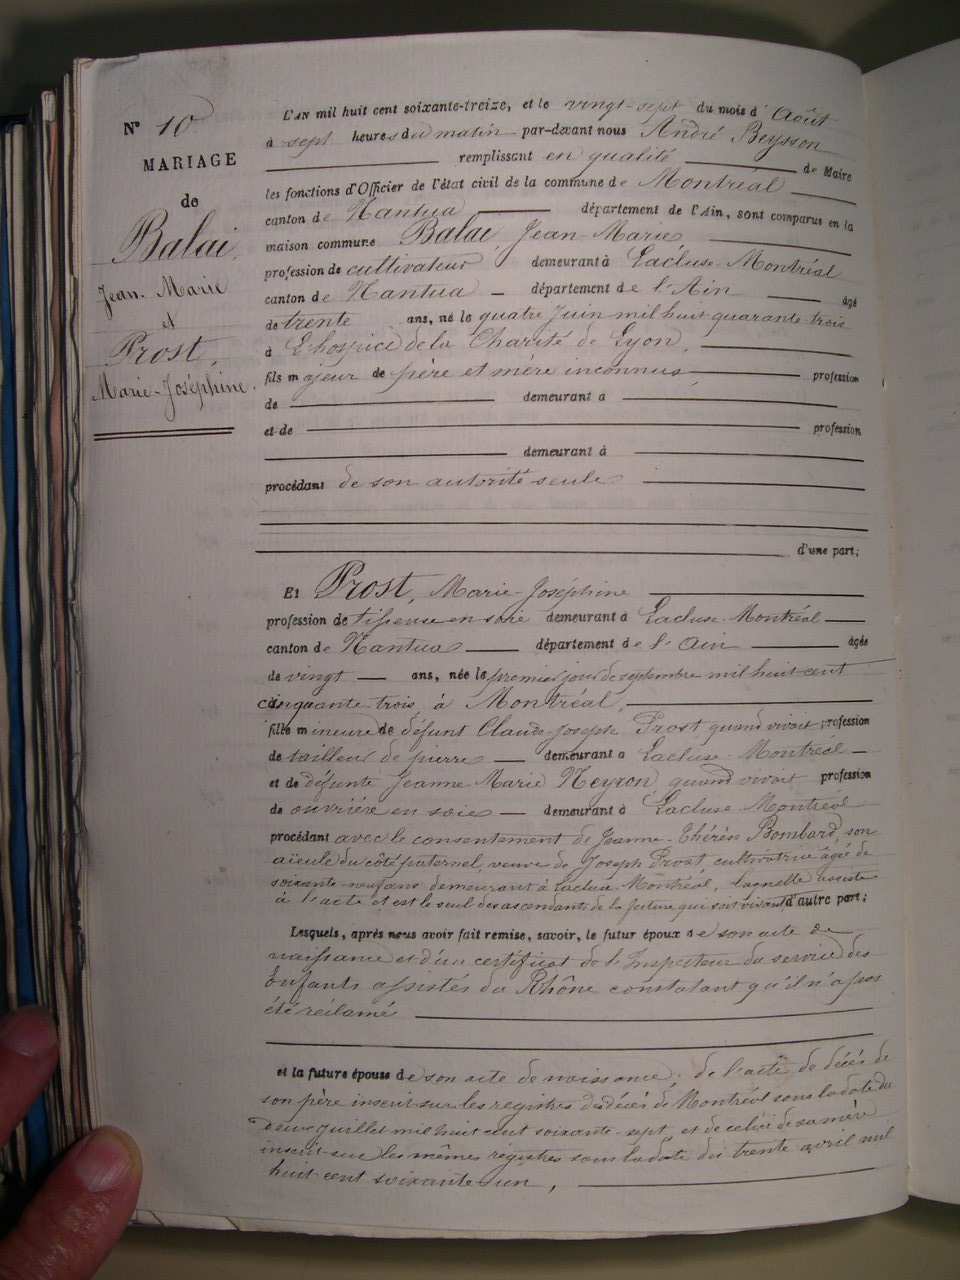 N° 10
MARIAGE
de
Balai,
Jean-Marie
et
Prost,
Marie-Joséphine.
L'AN mil huit cent soixante-treize, et le vingt-sept du mois d'Août
à sept heures du matin par-devant nous André Beysson
remplissant en qualité de Maire
les fonctions d'Officier de l'état civil de la commune de Montréal
canton de Nantua département de l'Ain, sont comparus en la
maison commune Balai, Jean-Marie
profession de cultivateur demeurant à Lacluse-Montréal
canton de Nantua département de l'Ain âgé
de trente ans, né le quatre Juin mil huit quarante-trois
à l'hospice de la Charité de Lyon,
fils majeur de père et mère inconnus profession
de demeurant à
et de profession
demeurant à
procédant de son autorité seule
d'une part;
Et Prost, Marie-Joséphine
profession de tisseuse en soie demeurant à Lacluse-Montréal
canton de Nantua département de l'Ain âgée
de vingt ans, née le premier jour de septembre mil huit cent
cinquante-trois, à Montréal,
fille mineure de défunt Claude-Joseph Prost quand vivait profession
de tailleur de pierre demeurant à Lacluse-Montréal
et de défunte Jeanne-Marie Neyron, quand vivait profession
de ouvrière en soie demeurant à Lacluse-Montréal
procédant avec le consentement de Jeanne-Thérèse Bombard, son
aïeule du côté paternel, veuve de Joseph Prost cultivatrice âgée de
soixante-neuf ans demeurant à Lacluse-Montréal, laquelle assiste
à l'acte et est le seul des ascendants de la future qui soit vivant d'autre part;
Lesquels, après nous avoir fait remise, savoir, le futur époux de son acte de
naissance et d'un certificat de l'Inspecteur du service des
Enfants assistés du Rhône constatant qu'il n'a pas
été réclamé
et la future épouse de son acte de naissance, de l'acte de décès de
son père inscrit sur les registres des décès de Montréal sous la date du
deux juillet mil huit cent soixante-sept, et de celui de sa mère
inscrit sur les mêmes registres sous la date du trente avril mil
huit cent soixante-un,